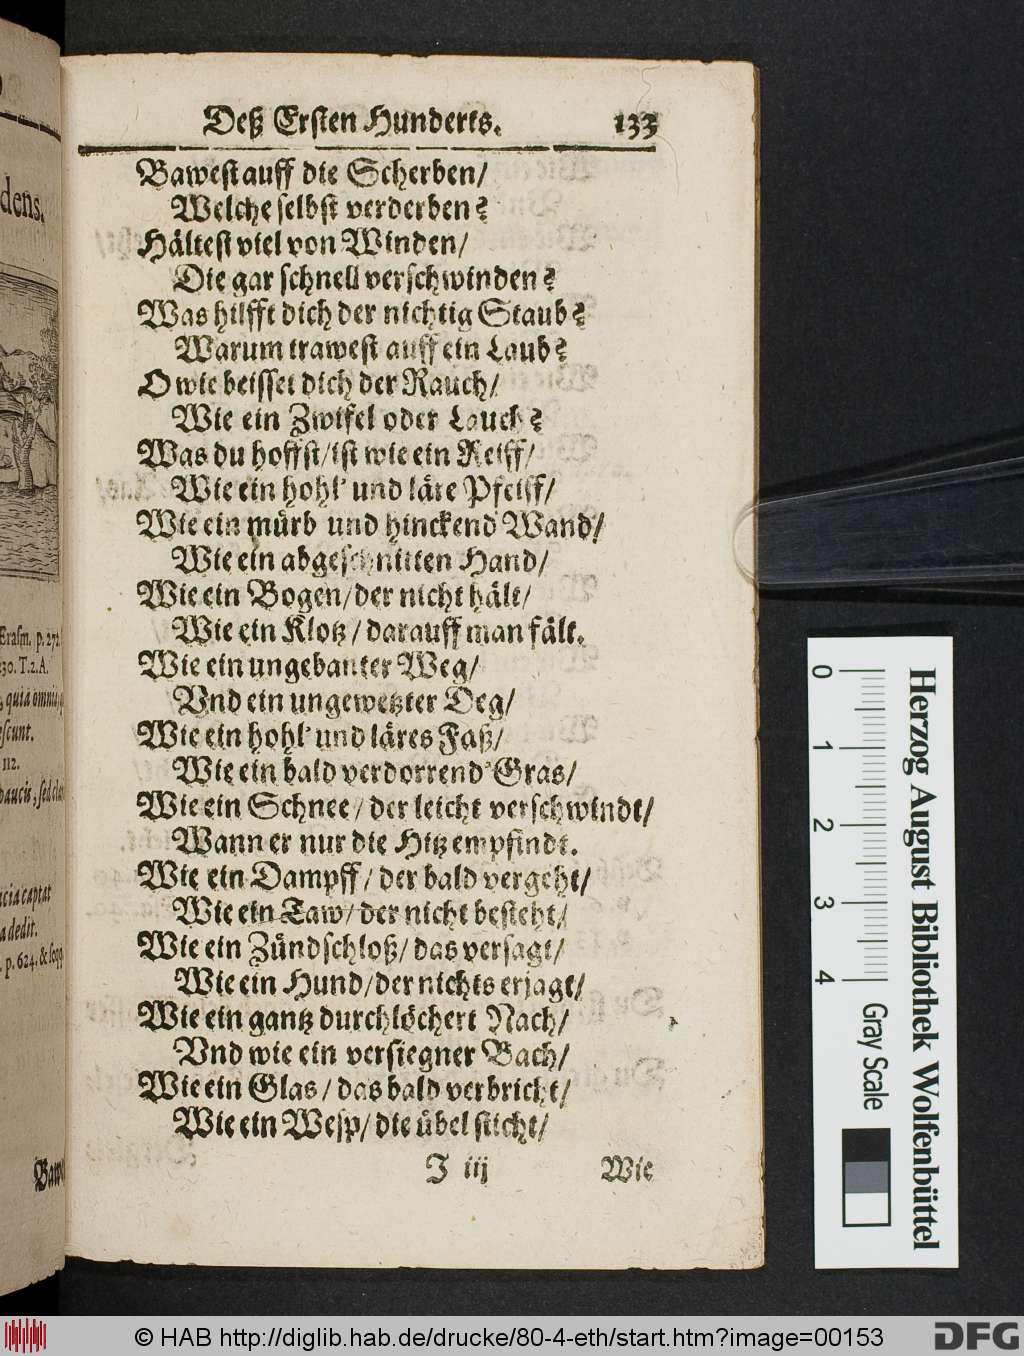 Deß Ersten Hunderts. 133
Bawest auff die Scherben/
Welche selbst verderben?
Hältest viel von Winden/
Die gar schnell verschwinden?
Was hilfft dich der nichtig Staub?
Warum trawest auff ein Laub?
O wie beisset dich der Rauch/
Wie ein Zwifel oder Lauch?
Was du hoffst/ ist wie ein Reiff/
Wie ein hohl' und läre Pfeiff/
Wie ein mürb und hinckend Wand/
Wie ein abgeschnitten Hand/
Wie ein Bogen/ der nicht hält/
Wie ein Klotz/ darauff man fält.
Wie ein ungebanter Weg/
Vnd ein ungewetzter Deg/
Wie ein hohl' und läres Faß/
Wie ein bald verdorrend' Gras/
Wie ein Schnee/ der leicht verschwindt/
Wann er nur die Hitz empfindt.
Wie ein Dampff/ der bald vergeht/
Wie ein Taw/ der nicht besteht/
Wie ein Zündschloß/ das versagt/
Wie ein Hund/ der nichts erjagt/
Wie ein gantz durchlöchert Nach/
Vnd wie ein versiegner Bach/
Wie ein Glas/ das bald verbricht/
Wie ein Wesp/ die übel sticht/
J iij Wie
dens.
Erasm. p. 272.
230. T. 2. A.
quia omnia
escunt.
112.
paucis, sed
captat
a dedit.
p. 624. & seqq.
Baw
Herzog August Bibliothek Wolfenbüttel
0 1 2 3 4
Gray Scale
© HAB http://diglib.hab.de/drucke/80-4-eth/start.htm?image=00153
DFG